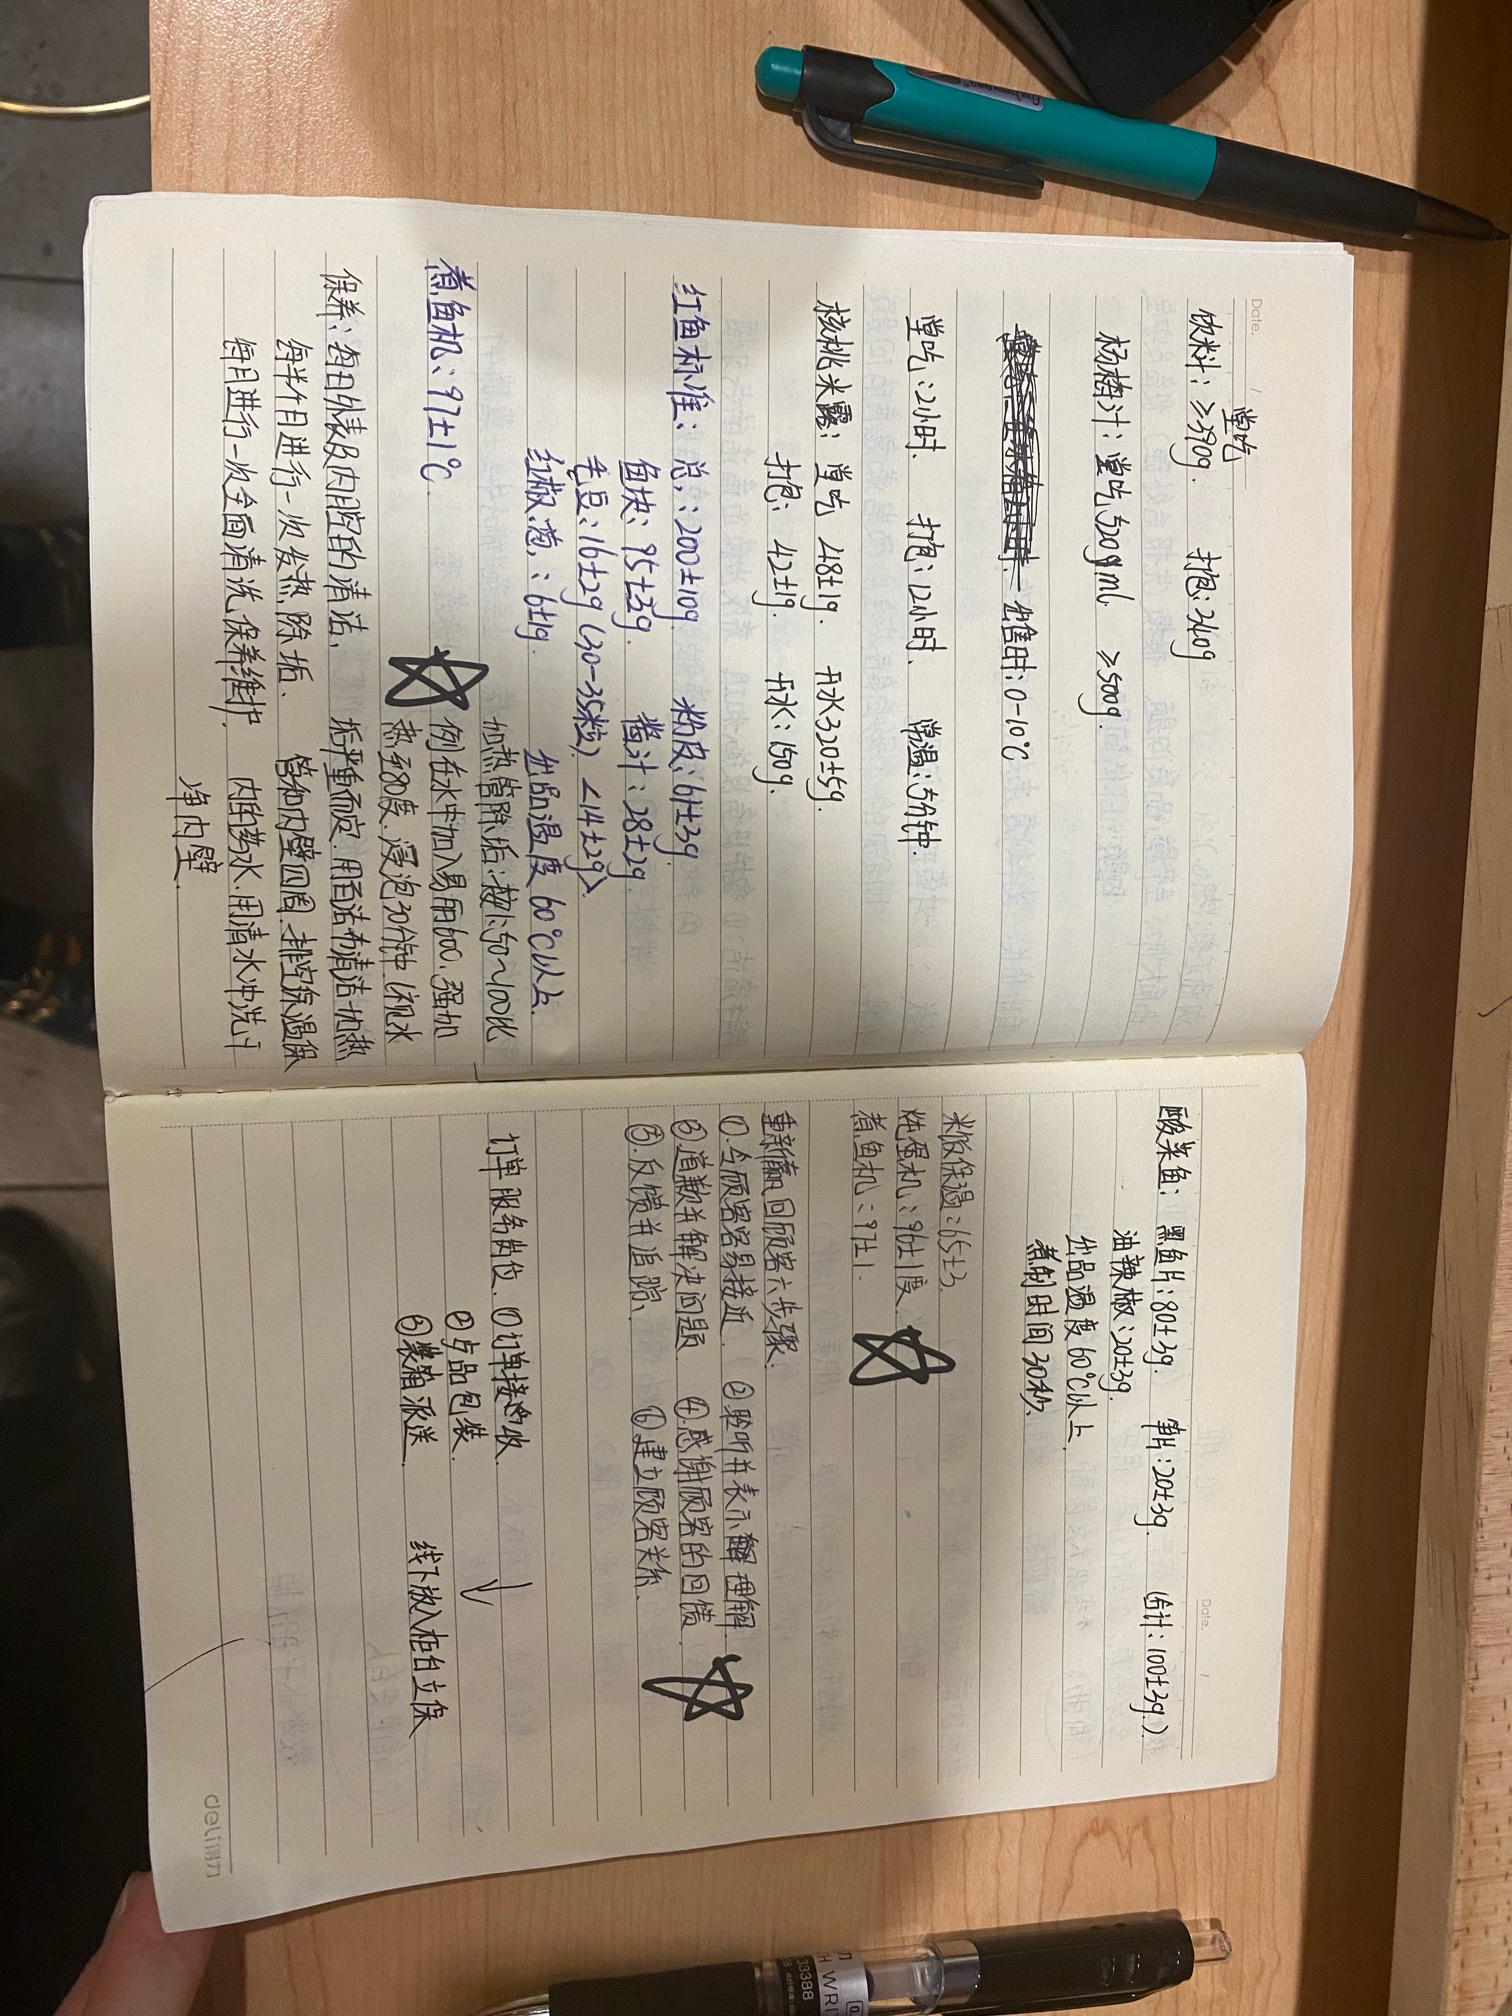 Date. /
堂吃
饮料：≥390g. 打抱：340g
杨梅汁：堂吃520gml. ≥500g.
出售时：0-10℃
堂吃：2小时. 打抱：12小时、 常温：5分钟.
核桃米露：堂吃 48±1g. 开水320±5g.
打抱： 42±1g. 开水：150g.
红鱼标准：总：200±10g 粉皮：61±3g.
鱼块：95±3g. 酱汁：28±2g.
毛豆：16±2g（30-35粒）<14±2g>.
红椒葱,：6±1g. 出品温度60℃以上.
加热管除垢：按1:50~100比
煮鱼机：97±1℃. 例在水中加入易丽600,强加
热至80度.浸泡30分钟（视水
保养：每日外表及内腔的清洁, 垢严重而定.用百洁布清洁加热
每半个月进行一次发热除垢、 管和内壁四周.排空保温保
每月进行一次全面清洗,保养维护. 内的热水.用清水冲洗干
净内壁.
Date. /
酸菜鱼：黑鱼片：80±3g. 笋片：20±3g. （合计：100±3g.）
油辣椒：20±3g.
出品温度60℃以上.
煮制时间30秒.
米饭保温：65±3.
炖蛋机：96±1度.
煮鱼机：97±1.
重新赢回顾客六步骤.
①.令顾客容易接近. ②聆听并表示理解
③道歉并解决问题. ④.感谢顾客的回馈.
⑤.反馈并追踪、 ⑥.建立顾客关系、
订单服务岗位.①订单接收.
②点品包装.
③装箱派送. 线下放入柜台立保
deli得力
33388